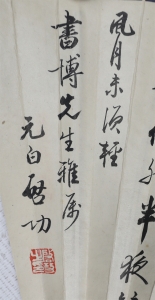 半夜
風月未須輕
書博先生雅屬
元白啓功